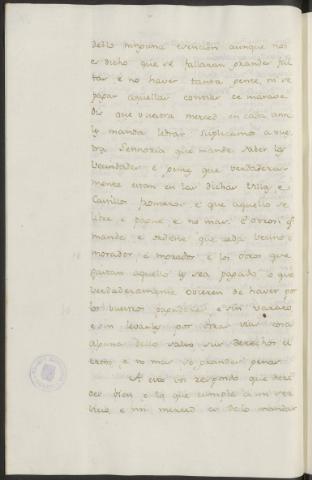 dello ninguna evencion aunque nos
es dicho que se fallaran grandes fal
tas e no haver tanta gente, ni se
pagar aquellas contias de marave
dis que vuestra merced en cada año
les manda librar suplicamos a vues
tra Señoria que mande saber los
vecindades e gente que verdadera
mente estan en las dichas Villas e
Castillos fronteros e que aquello se
libre e pague e no mas. E otrosi q.
mande e ordene que cada vecino e
morador e morador e los otros que
ganan aquello les sea pagado o que
verdaderamente ovieren de haver por
los buenos pagadores e sin
e sin levarles por otra via cosa
alguna dello salvo sus derechos el
cierto, e no mas so grandes penas.
A esto vos respondo que dece
des bien e lo que cumple a mi ser
vicio, e mi merced es de lo mandar